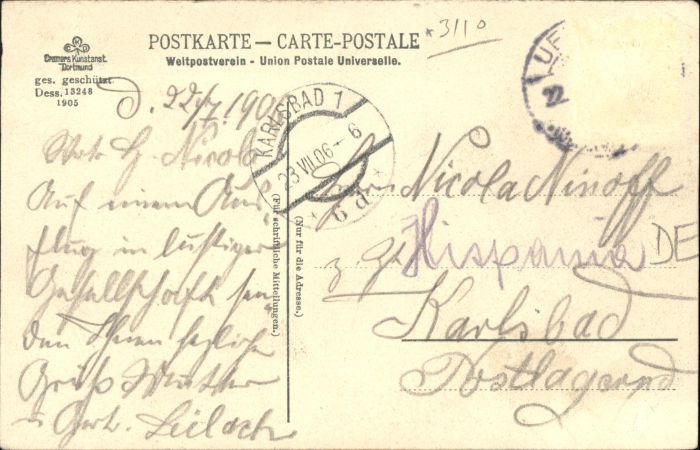 POSTKARTE — CARTE-POSTALE
Weltpostverein - Union Postale Universelle.
Cramers Kunstanst.
Dortmund
ges. geschützt
Dess. 13248
1905
*3110
UF
22
KARLSBAD 1
23 VII 06 - 6
* 6 d *
d. 22/7. 1906
Nicola
Auf einem Aus-
flug in lustiger
Gesellschaft sen-
den Ihnen herzliche
Grüße
u Gert.
(Für schriftliche Mitteilungen.)
(Nur für die Adresse.)
Herrn Nicola Ninoff
z Zt Hispania DE
Karlsbad
Postlagernd